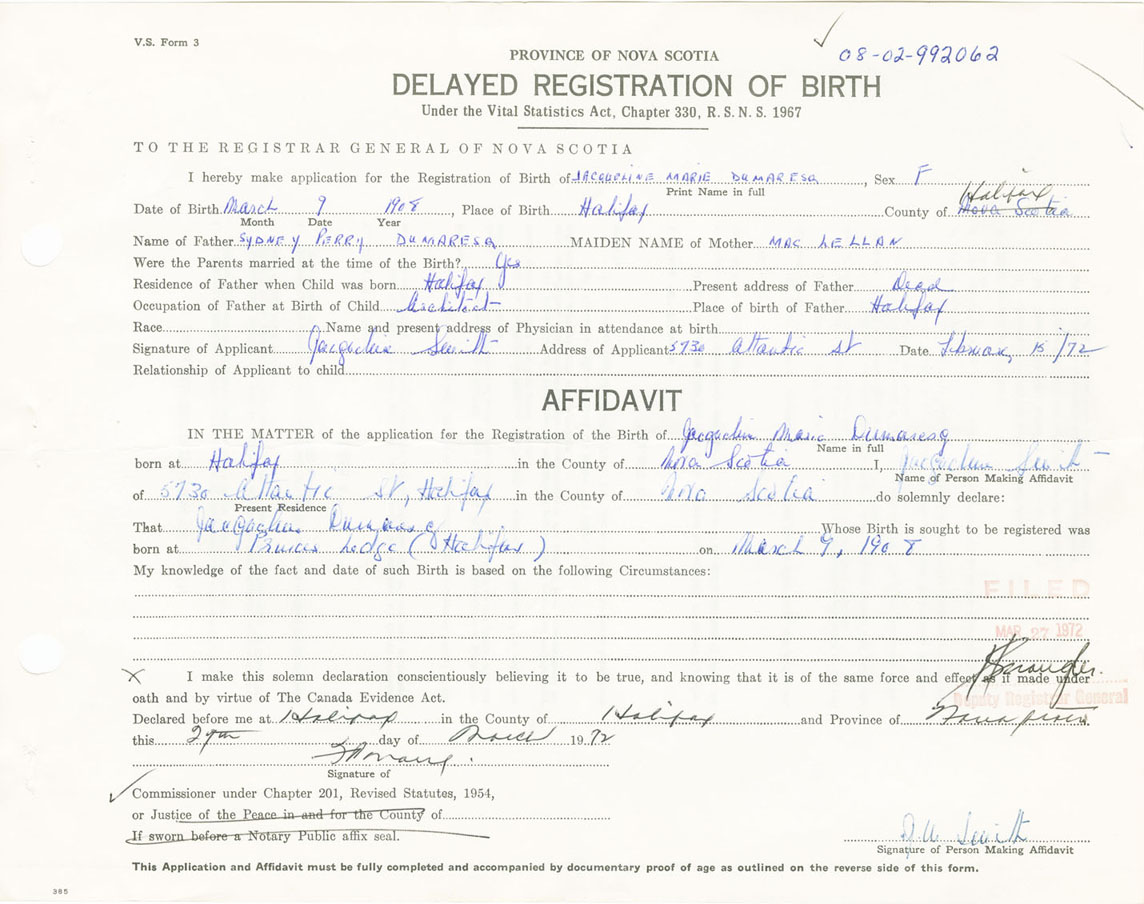 V.S. Form 3
08-02-992062
PROVINCE OF NOVA SCOTIA
DELAYED REGISTRATION OF BIRTH
Under the Vital Statistics Act, Chapter 330, R.S.N.S. 1967
TO THE REGISTRAR GENERAL OF NOVA SCOTIA
I hereby make application for the Registration of Birth of JACQUELINE MARIE DUMARESQ, Sex F
Print Name in full
Halifax
Date of Birth March 9 1908, Place of Birth Halifax County of Nova Scotia
Month Date Year
Name of Father SYDNEY PERRY DUMARESQ MAIDEN NAME of Mother MAC LELLAN
Were the Parents married at the time of the Birth? Yes
Residence of Father when Child was born Halifax Present address of Father Dead
Occupation of Father at Birth of Child Architect Place of birth of Father Halifax
Race Name and present address of Physician in attendance at birth
Signature of Applicant Jacquelin Smith Address of Applicant 5730 Atlantic St Date February 15/72
Relationship of Applicant to child
AFFIDAVIT
IN THE MATTER of the application for the Registration of the Birth of Jacquelin Marie Dumaresq
Name in full
born at Halifax in the County of Nova Scotia I, Jacquelin Smith
Name of Person Making Affidavit
of 5730 Atlantic St, Halifax in the County of Nova Scotia do solemnly declare:
Present Residence
That Jacquelin Dumaresq Whose Birth is sought to be registered was
born at Ledge (Halifax) on March 9, 1908
My knowledge of the fact and date of such Birth is based on the following Circumstances:
FILED
MAR 27 1972
I make this solemn declaration conscientiously believing it to be true, and knowing that it is of the same force and effect as if made under
oath and by virtue of The Canada Evidence Act.
Deputy Registrar General
Declared before me at Halifax in the County of Halifax and Province of Nova Scotia
this day of March 1972
Signature of
Commissioner under Chapter 201, Revised Statutes, 1954,
or Justice of the Peace in and for the County of
If sworn before a Notary Public affix seal.
Smith
Signature of Person Making Affidavit
This Application and Affidavit must be fully completed and accompanied by documentary proof of age as outlined on the reverse side of this form.
385